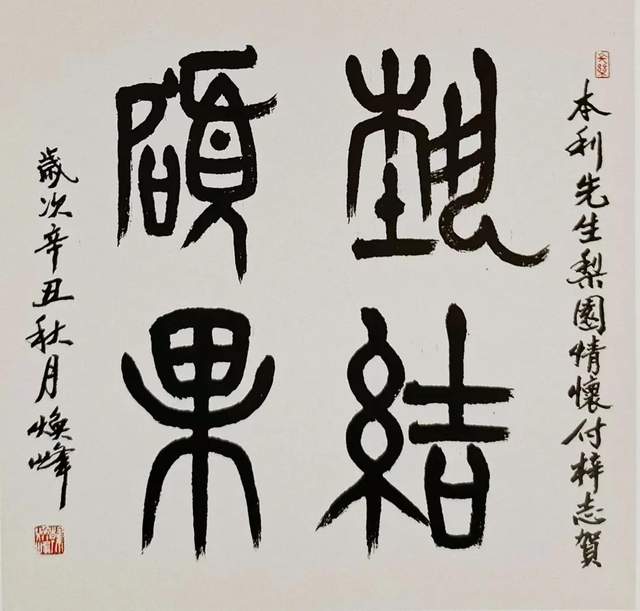 本利先生梨園情懷付梓志賀
埶結
碩果
歲次辛丑秋月煥峰